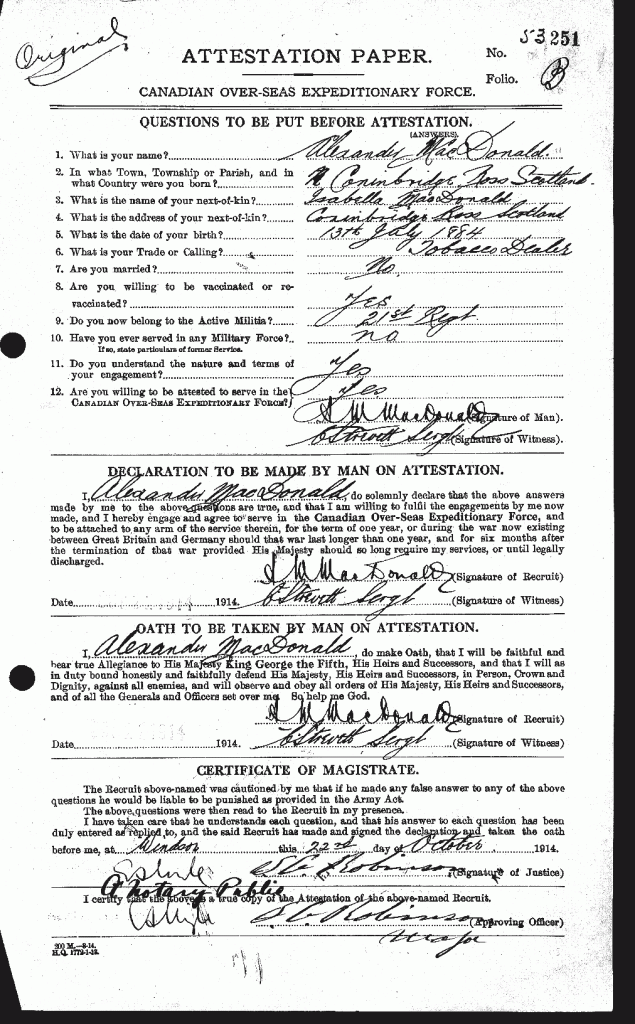 Original
53251
ATTESTATION PAPER.
No.
Folio. B
CANADIAN OVER-SEAS EXPEDITIONARY FORCE.
QUESTIONS TO BE PUT BEFORE ATTESTATION.
(ANSWERS).
1. What is your name? Alexander MacDonald.
2. In what Town, Township or Parish, and in
what Country were you born? Coninbridge Ross Scotland.
3. What is the name of your next-of-kin? Isabella MacDonald
4. What is the address of your next-of-kin? Coninbridge Ross Scotland
5. What is the date of your birth? 13th July 1884
6. What is your Trade or Calling? Tobacco Dealer
7. Are you married? No
8. Are you willing to be vaccinated or re-
vaccinated? Yes
9. Do you now belong to the Active Militia? 21st Regt
10. Have you ever served in any Military Force? no
If so, state particulars of former Service.
11. Do you understand the nature and terms of
your engagement? Yes
12. Are you willing to be attested to serve in the Yes
CANADIAN OVER-SEAS EXPEDITIONARY FORCE?
MacDonald (Signature of Man).
Sergt (Signature of Witness).
DECLARATION TO BE MADE BY MAN ON ATTESTATION.
I, Alexander MacDonald, do solemnly declare that the above answers
made by me to the above questions are true, and that I am willing to fulfil the engagements by me now
made, and I hereby engage and agree to serve in the Canadian Over-Seas Expeditionary Force, and
to be attached to any arm of the service therein, for the term of one year, or during the war now existing
between Great Britain and Germany should that war last longer than one year, and for six months after
the termination of that war provided His Majesty should so long require my services, or until legally
discharged.
MacDonald (Signature of Recruit)
Date 1914. Sergt (Signature of Witness)
OATH TO BE TAKEN BY MAN ON ATTESTATION.
I, Alexander MacDonald, do make Oath, that I will be faithful and
bear true Allegiance to His Majesty King George the Fifth, His Heirs and Successors, and that I will as
in duty bound honestly and faithfully defend His Majesty, His Heirs and Successors, in Person, Crown and
Dignity, against all enemies, and will observe and obey all orders of His Majesty, His Heirs and Successors,
and of all the Generals and Officers set over me. So help me God.
MacDonald (Signature of Recruit)
Date 1914. Sergt (Signature of Witness)
CERTIFICATE OF MAGISTRATE.
The Recruit above-named was cautioned by me that if he made any false answer to any of the above
questions he would be liable to be punished as provided in the Army Act.
The above questions were then read to the Recruit in my presence.
I have taken care that he understands each question, and that his answer to each question has been
duly entered as replied to, and the said Recruit has made and signed the declaration and taken the oath
before me, at Windsor this 22nd day of October 1914.
Robinson (Signature of Justice)
A Notary Public
I certify that the above is a true copy of the Attestation of the above-named Recruit.
Robinson (Approving Officer)
Major
200 M.—8-14.
H.Q. 1772-1-13.